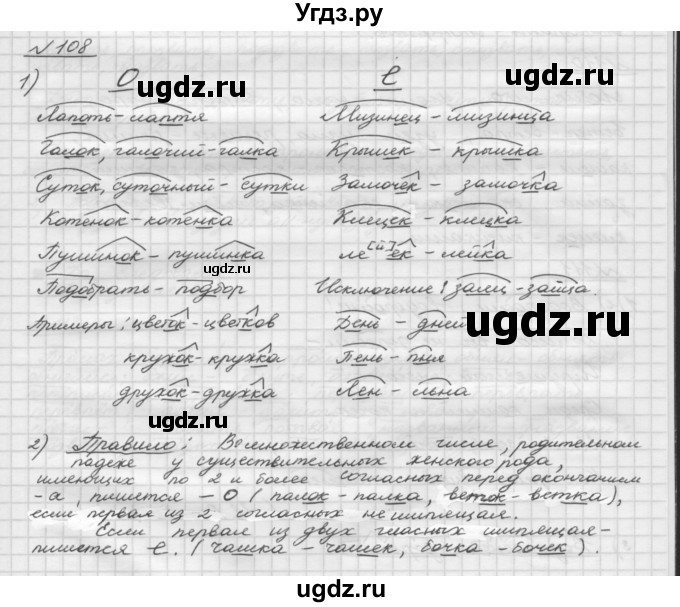 Угдз.ру
№ 108
1) О е
ugdz.ru ugdz.ru
Лапоть - лаптя Мизинец - мизинца
Галок, галочий - галка Крышек - крышка
Суток, суточный - сутки Замочек - замочка
Котёнок - котёнка Клецек - клецка
Пушинок - пушинка ле[й]ек - лейка
ugdz.ru
Подобрать - подбор Исключение: заяц - зайца.
Примеры: цветок - цветков День - дней
ugdz.ru
кружок - кружка Пень - пня
дружок - дружка Лён - льна
ugdz.ru
2) Правило: Во множественном числе, родительном
падеже у существительных женского рода,
имеющих по 2 и более согласных перед окончанием
-а, пишется - О (палок - палка, веток - ветка),
если первая из 2 согласных не шипящая.
Если первая из двух гласных шипящая -
пишется е. (чашка - чашек, бочка - бочек).
ugdz.ru
ugdz.ru